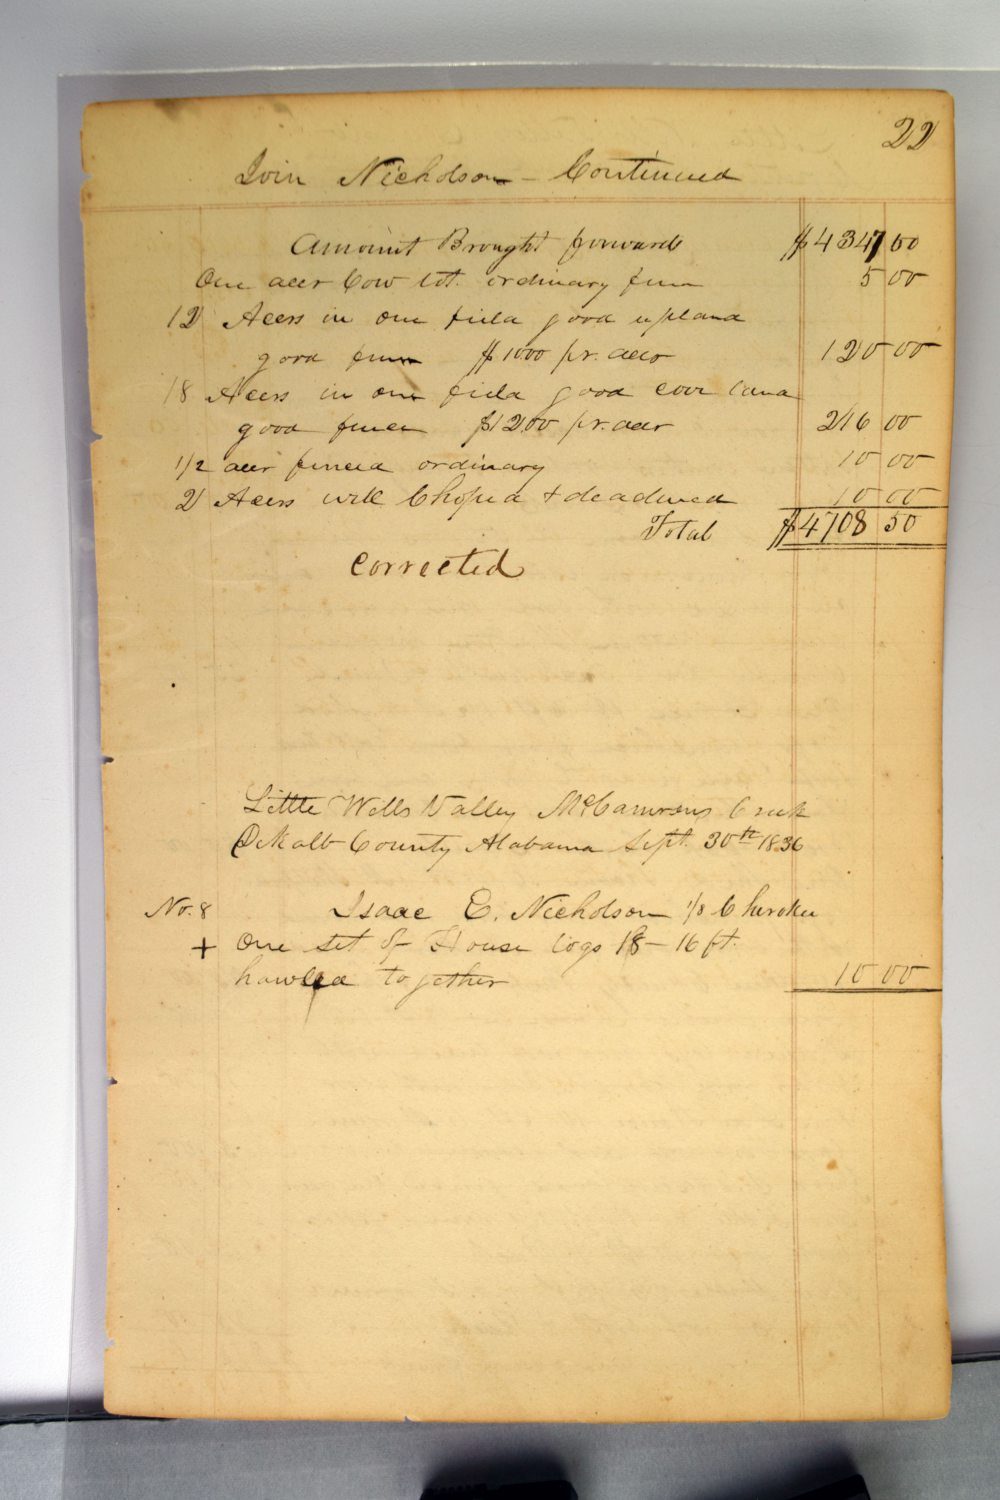 22
Ivin Nicholson - Continued
Amount Brought forward $4347 50
One acer Cow lot. ordinary fence 5 00
12 Acers in one field good upland
good fence $10.00 pr. acer 120 00
18 Acers in one field good cove land
good fence $12.00 pr. acer 216 00
1/2 acer fenced ordinary 10 00
2 Acers well Choped + deadened 10 00
Total $4708 50
Corrected
Little Wills Valley McCamrons Creek
DeKalb County Alabama Sept. 30th 1836
No. 8 Isaac E. Nicholson 1/8 Cherokee
+ One set of House logs 18 - 16 ft.
hawled together 10 00